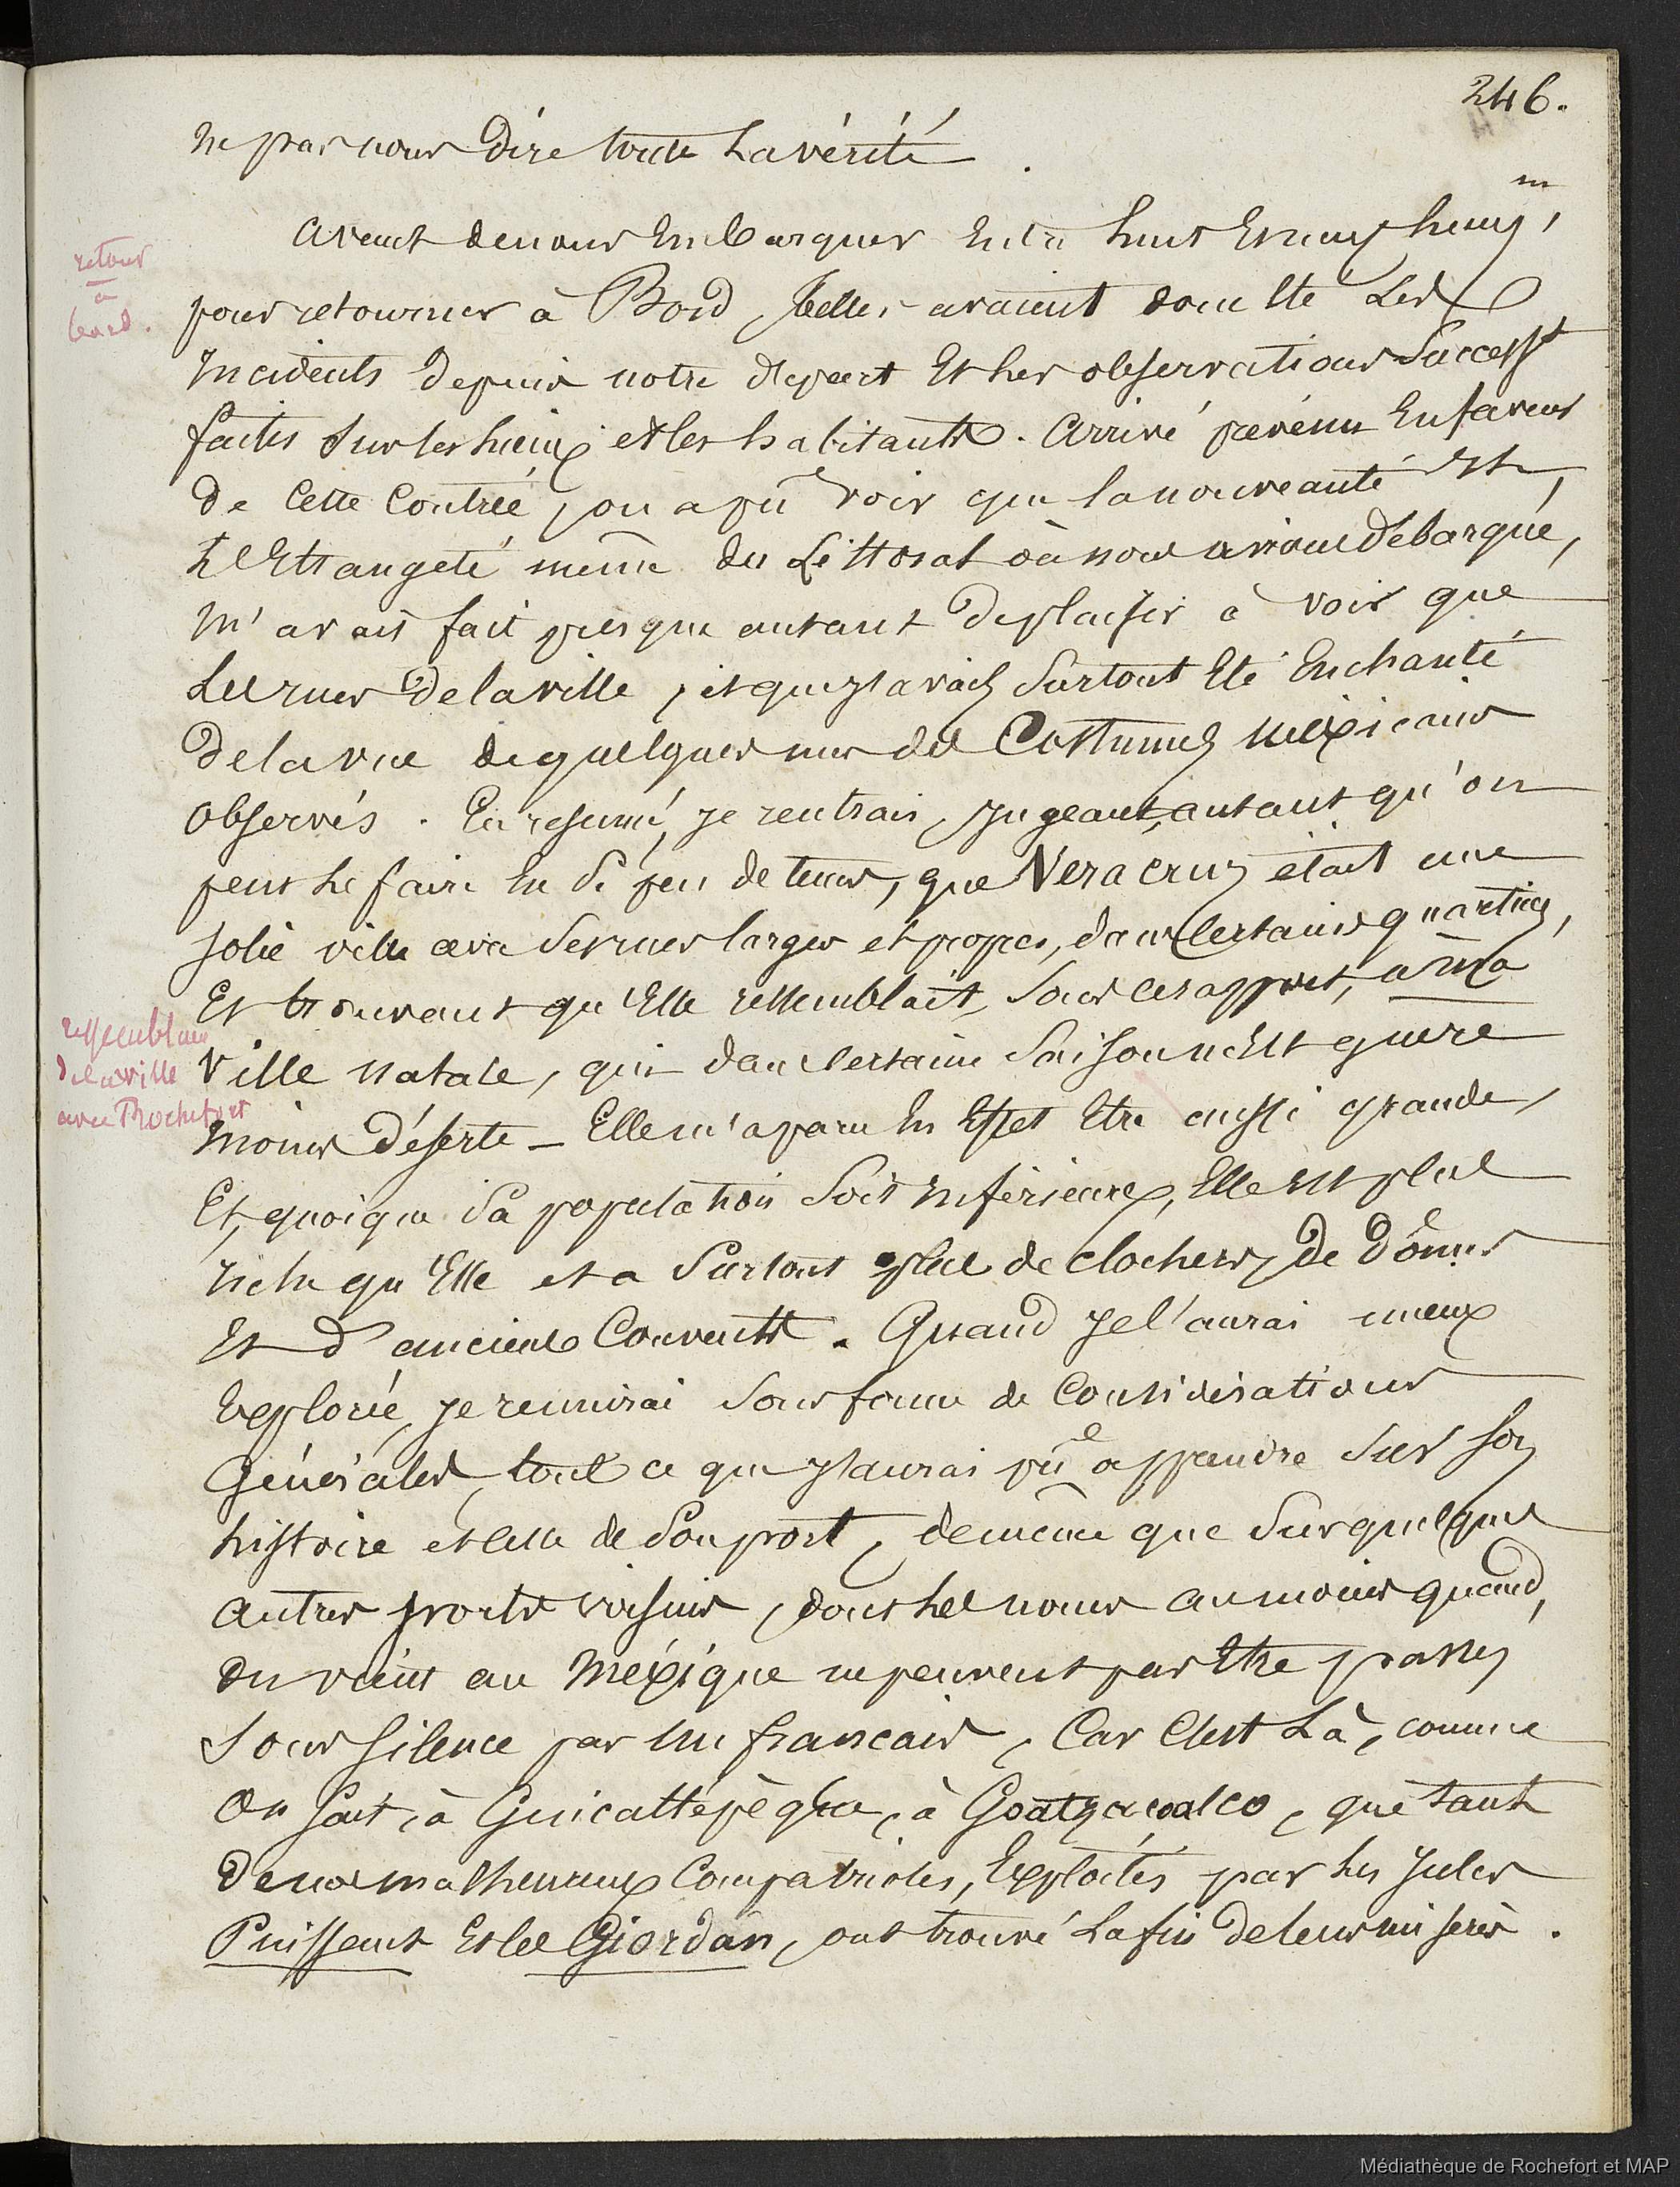 246.
ne pas nous dire toute la vérité.
m
Avant de nous embarquer entre huit et neuf heures,
retour
à
bord.
pour retourner à Bord, telles avaient donc été les
incidents depuis notre départ et les observations success
faites sur les lieux et les habitants. Arrivé prévenu en faveur
de cette contrée, on a pu voir que la nouveauté et,
l'Etrangeté même du Littoral où nous avions débarqué,
m'avait fait presque autant de plaisir à voir que
les rues de la ville, et que j'avais surtout été enchanté
de la vue de quelques uns des Costumes mexicains
observés. En résumé, je rentrais, jugeant, autant qu'on
peut le faire en si peu de tems, que Vera cruz était une
jolie ville avec ses rues larges et propres, dans certains quartiers,
Et trouvant qu'Elle ressemblait, sous ces rapport, à ma
ressemblance
de la ville
avec Rochefort
ville natale, qui dans certaine saison n'est guère
moins déserte — Elle m'a paru en effet être aussi grande,
Et, quoique sa population soit inférieure, Elle est plus
riche qu'Elle et a surtout plus de clochers, de Dômes
et d'anciens Couvents. Quand je l'aurai mieux
explorée, je réunirai sous forme de Considérations
Générales, tout ce que j'aurai pu apprendre sur son
histoire et celle de son port, de même que sur quelques
autres ports voisins, dont les noms au moins quand,
on vient au Méxique ne peuvent pas être passés
sous silence par un français, Car c'est là, comme
on sait, à Guicattépèque, à Goatzacoalco, que tant
de nos malheureux Compatriotes, Exploités par les Jules
Puissant et les Giordan, ont trouvé la fin de leurs misères.
Médiathèque de Rochefort et MAP